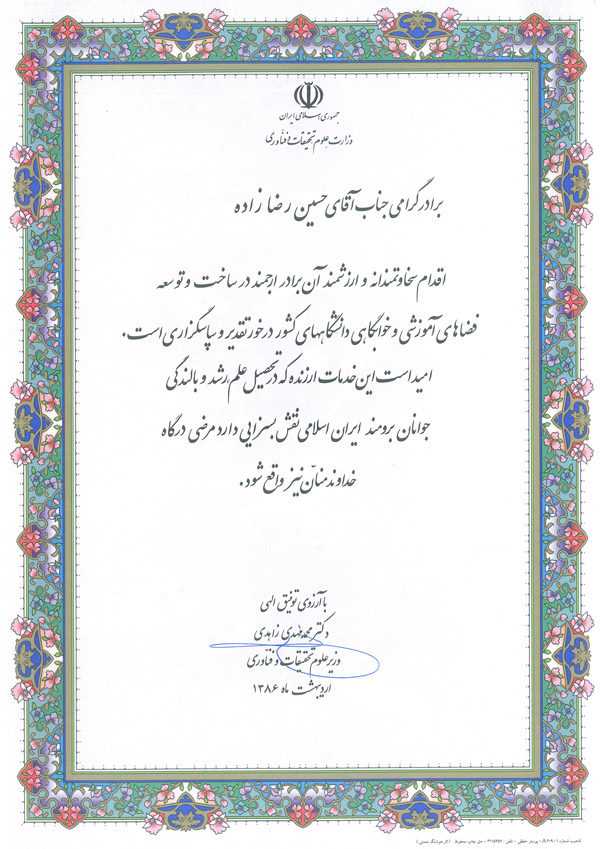 جمهوری اسلامی ایران
وزارت علوم تحقیقات و فنّاوری
برادر گرامی جناب آقای حسین رضا زاده
اقدام سخاوتمندانه و ارزشمند آن برادر ارجمند در ساخت و توسعه
فضاهای آموزشی و خوابگاهی دانشگاههای کشور در خور تقدیر و سپاسگزاری است.
امید است این خدمات ارزنده که در تحصیل علم، رشد و بالندگی
جوانان برومند ایران اسلامی نقش بسزایی دارد مرضی درگاه
خداوند منّان نیز واقع شود.
با آرزوی توفیق الهی
دکتر محمد مهدی زاهدی
وزیر علوم تحقیقات و فنّاوری
اردیبهشت ماه ۱۳۸۶